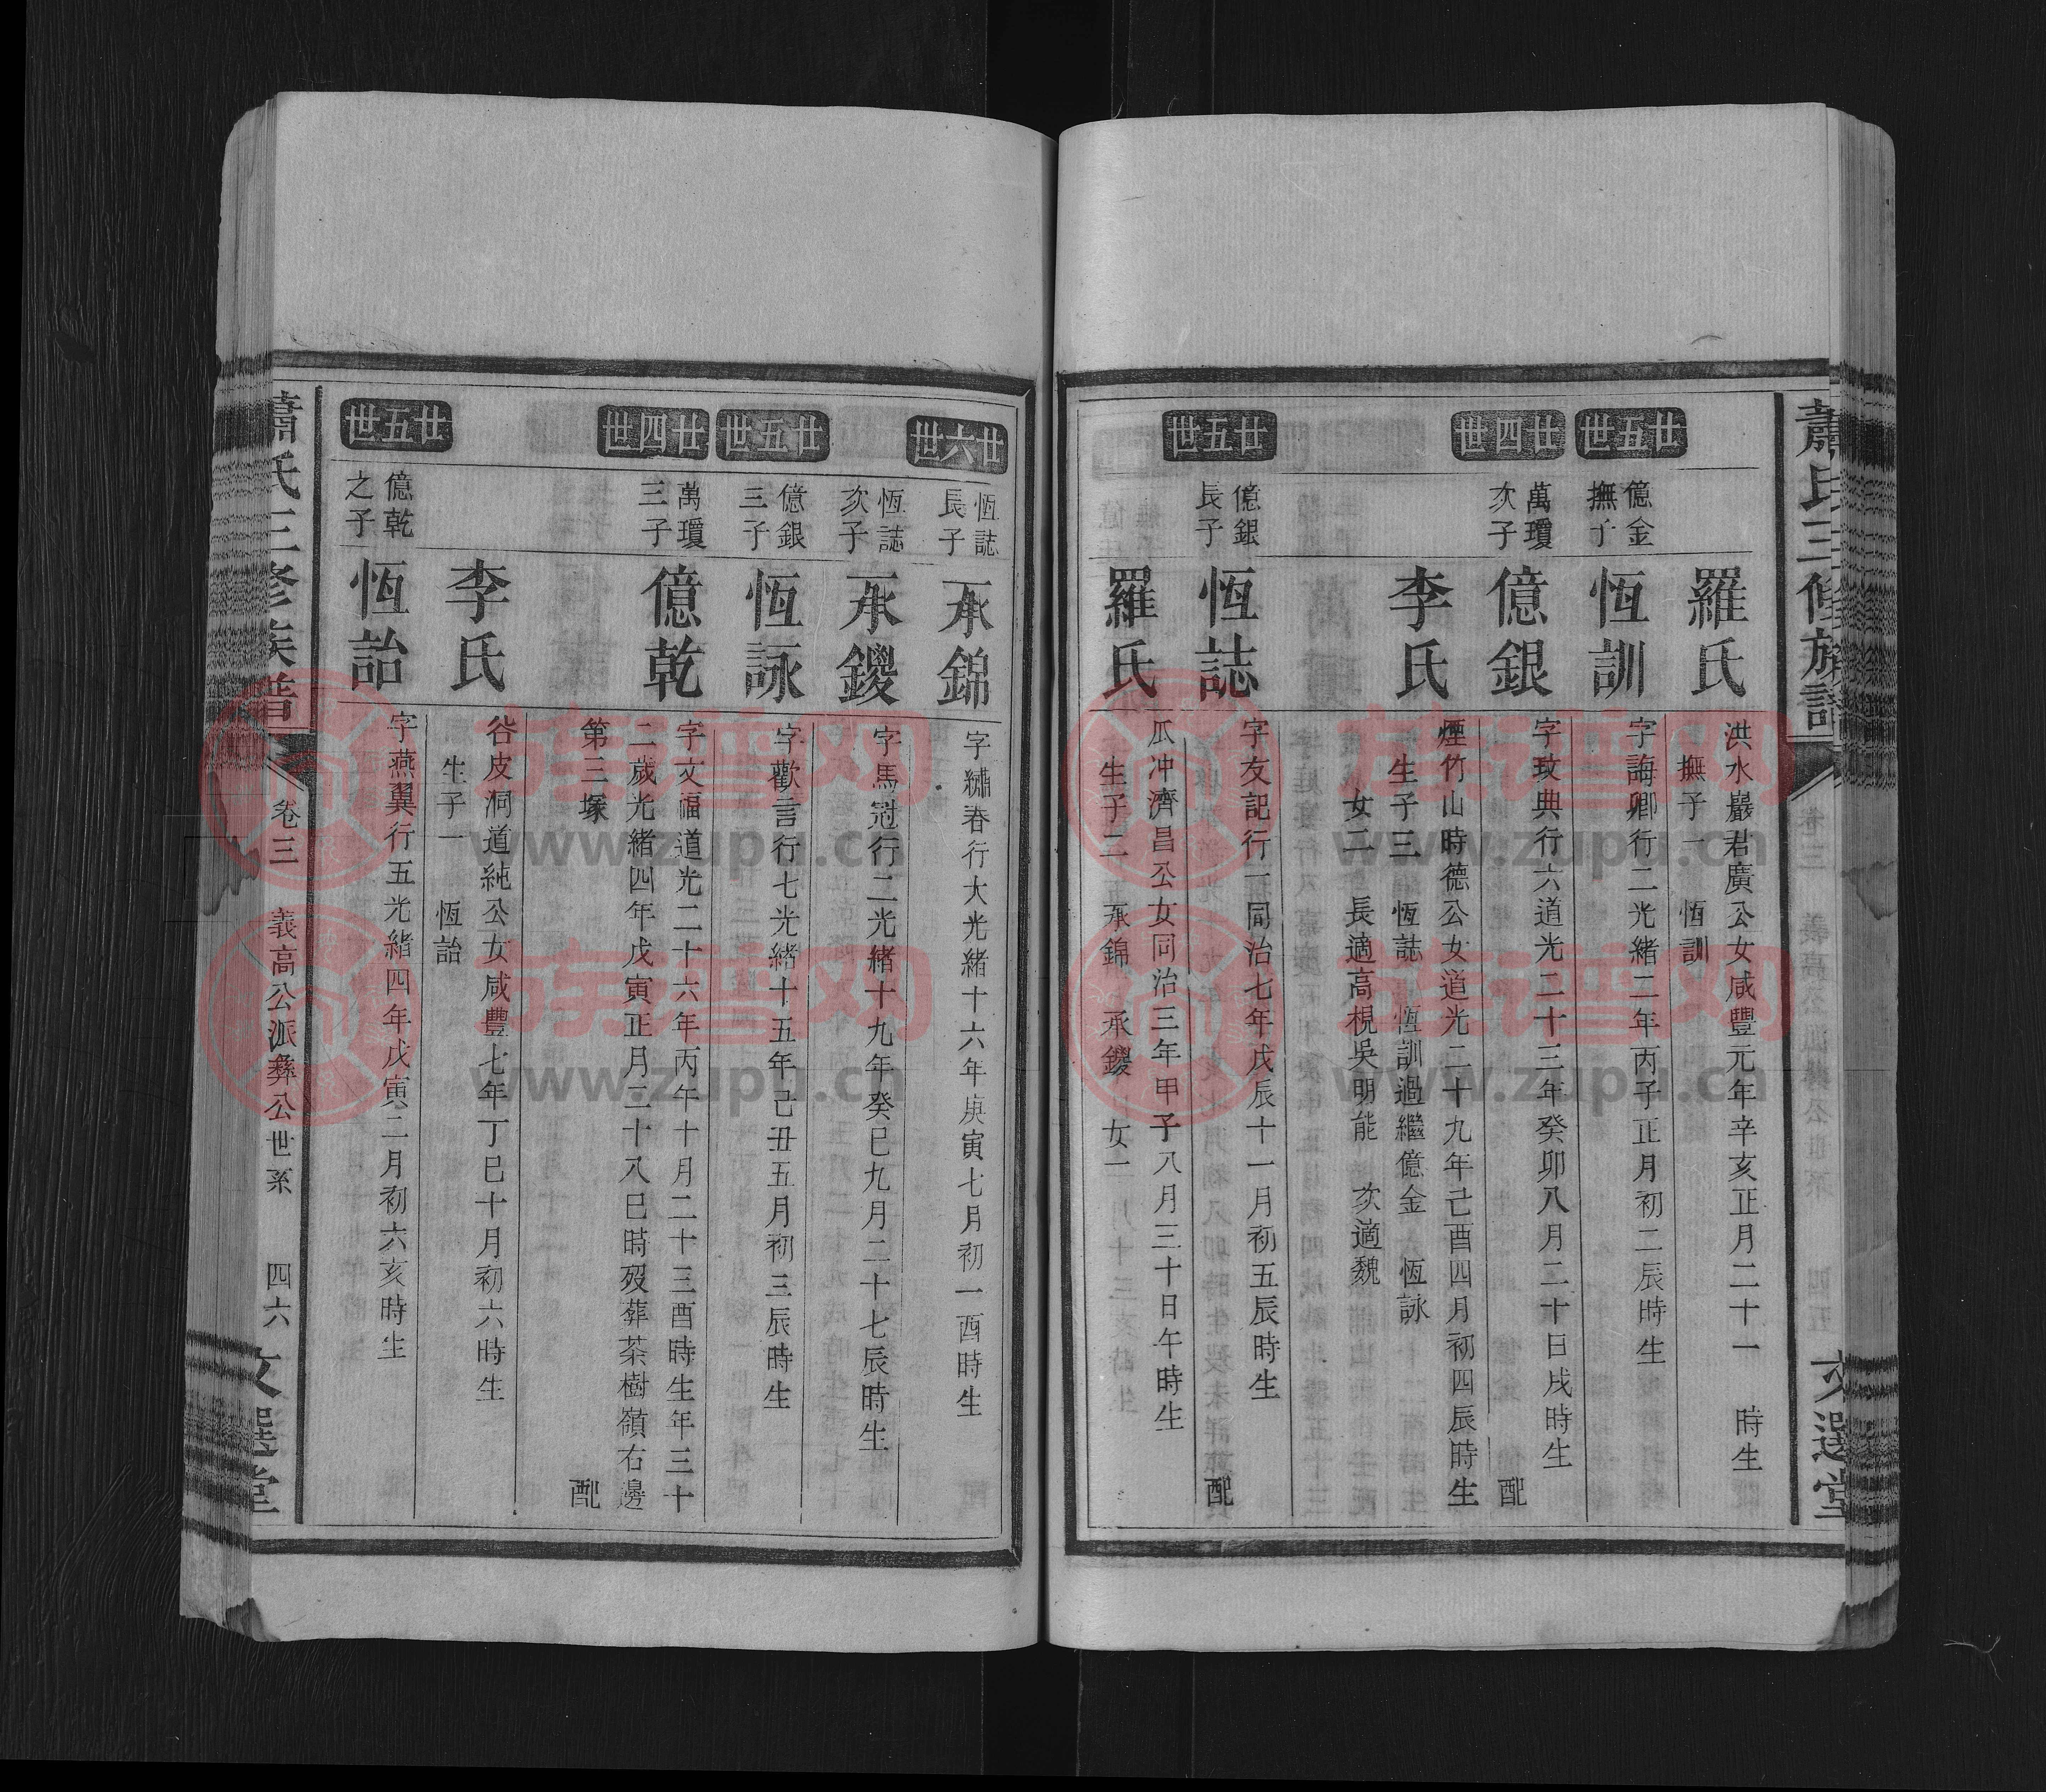 蕭氏三修族譜
文選堂
羅氏
洪水巖君廣公女咸豐元年辛亥正月二十一　時生
撫子一　恆訓
廿五世
億金
撫子
恆訓
字誨卿行二光緒二年丙子正月初二辰時生
廿四世
萬瓊
次子
億銀
字玟典行六道光二十三年癸卯八月二十日戌時生
配
李氏
煙竹山時德公女道光二十九年己酉四月初四辰時生
生子三　恆誌　恆訓過繼億金　恆詠
女二　長適高梘吳明能　次適魏
廿五世
億銀
長子
恆誌
字友記行一同治七年戊辰十一月初五辰時生
配
羅氏
瓜冲濟昌公女同治三年甲子八月三十日午時生
生子二　承錦　承鑁　女一
廿六世
恆誌
長子
承錦
字繡春行大光緒十六年庚寅七月初一酉時生
恆誌
次子
承鑁
字馬冠行二光緒十九年癸巳九月二十七辰時生
廿五世
億銀
三子
恆詠
字歡言行七光緒十五年己丑五月初三辰時生
廿四世
萬瓊
三子
億乾
字文福道光二十六年丙午十月二十三酉時生年三十
二歲光緒四年戊寅正月二十八巳時歿葬茶樹嶺右邊
第三塚
配
李氏
谷皮洞道純公女咸豐七年丁巳十月初六時生
生子一　恆詒
廿五世
億乾
之子
恆詒
字燕翼行五光緒四年戊寅二月初六亥時生
蕭氏三修族譜
卷三　義高公派彝公世系　四六
文選堂
族譜网
www.zupu.cn
族譜网
www.zupu.cn
族譜网
www.zupu.cn
族譜网
www.zupu.cn